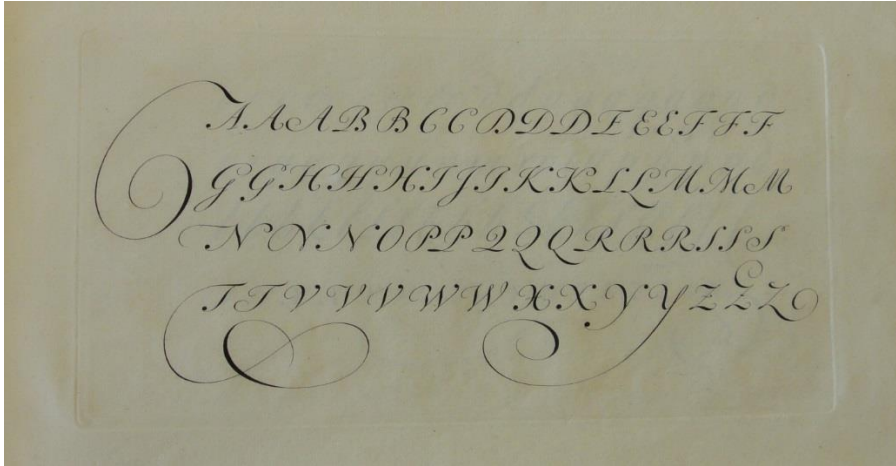 A A A B B C C D D D E E E F F F
G G H H H I J I K K L L M M M
N N N O P P Q Q Q R R R S S S
T T V V V W W X X Y Y Z Z Z